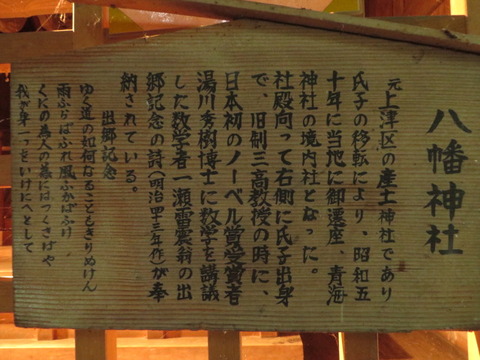 八幡神社
元上津区の産土神社であり
氏子の移転により、昭和五
十年に当地に御遷座、青海
神社の境内社となった。
社殿向って右側に氏子出身
で、旧制三高教授の時に、
日本初のノーベル賞受賞者
湯川秀樹博士に数学を講議
した数学者一瀬雷震翁の出
郷記念の詩(明治四三年作)が奉
納されている。
出郷記念
ゆく道の如何なることどきりぬけん
雨ふらばふれ風ふかばふけ
くにの為人の為にはつくさばや
我が身一つをいけにへとして